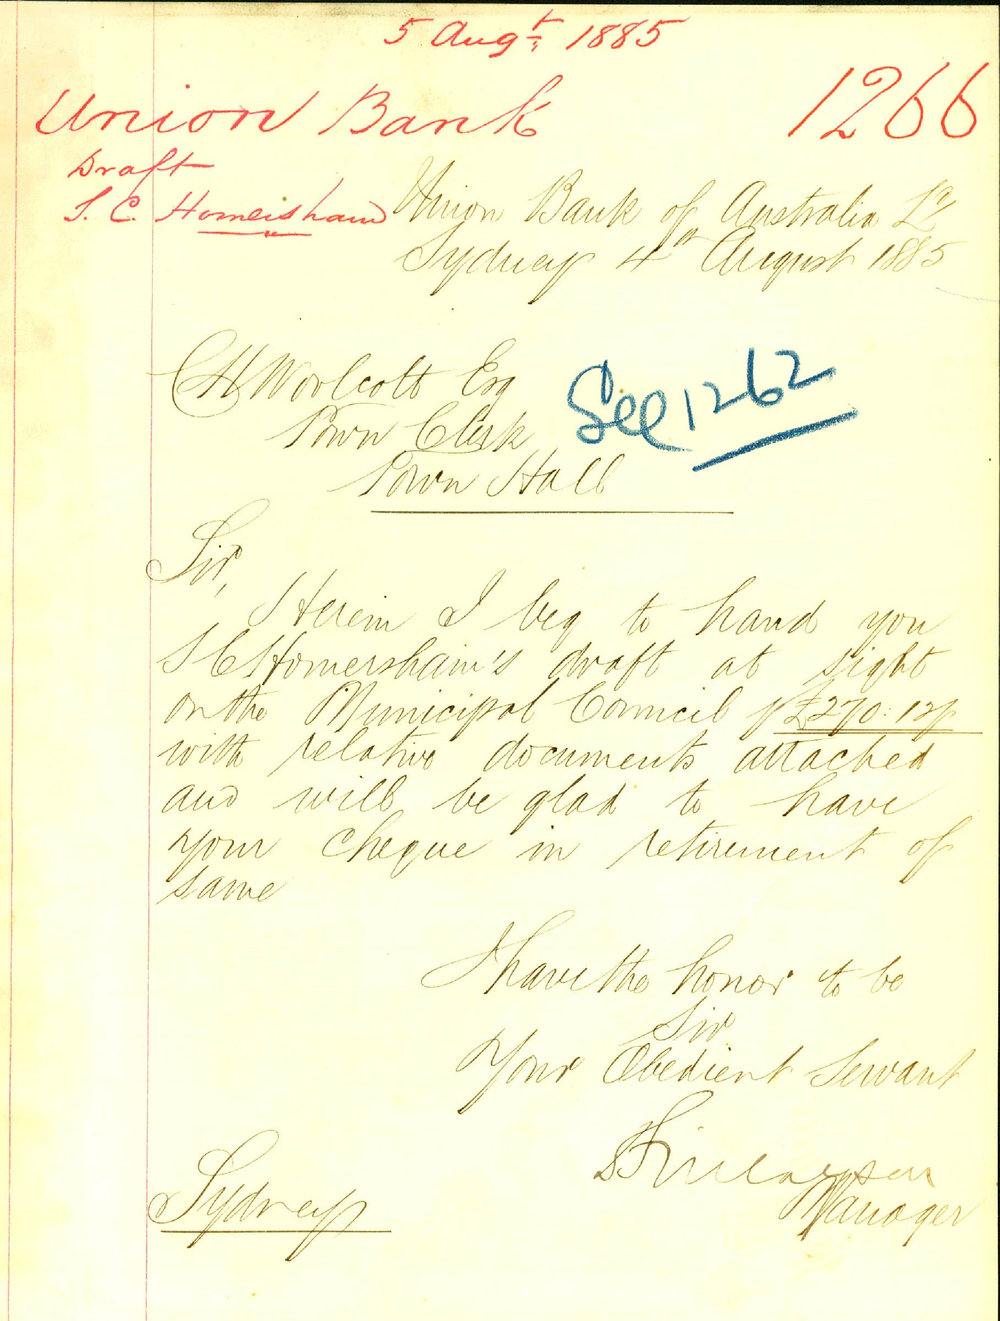 5 Augt 1885
Union Bank
1266
Draft
S. C. Homersham
Union Bank of Australia Ld
Sydney 4th August 1885
C H Woolcott Esq
Town Clerk
Town Hall
See 1262
Sir,
Herein I beg to hand you
S C Homersham's draft at sight
on the Municipal Council p £270:12/
with relative documents attached
and will be glad to have
your cheque in retirement of
same
I have the honor to be
Sir
Your Obedient Servant
D Finlayson
Manager
Sydney